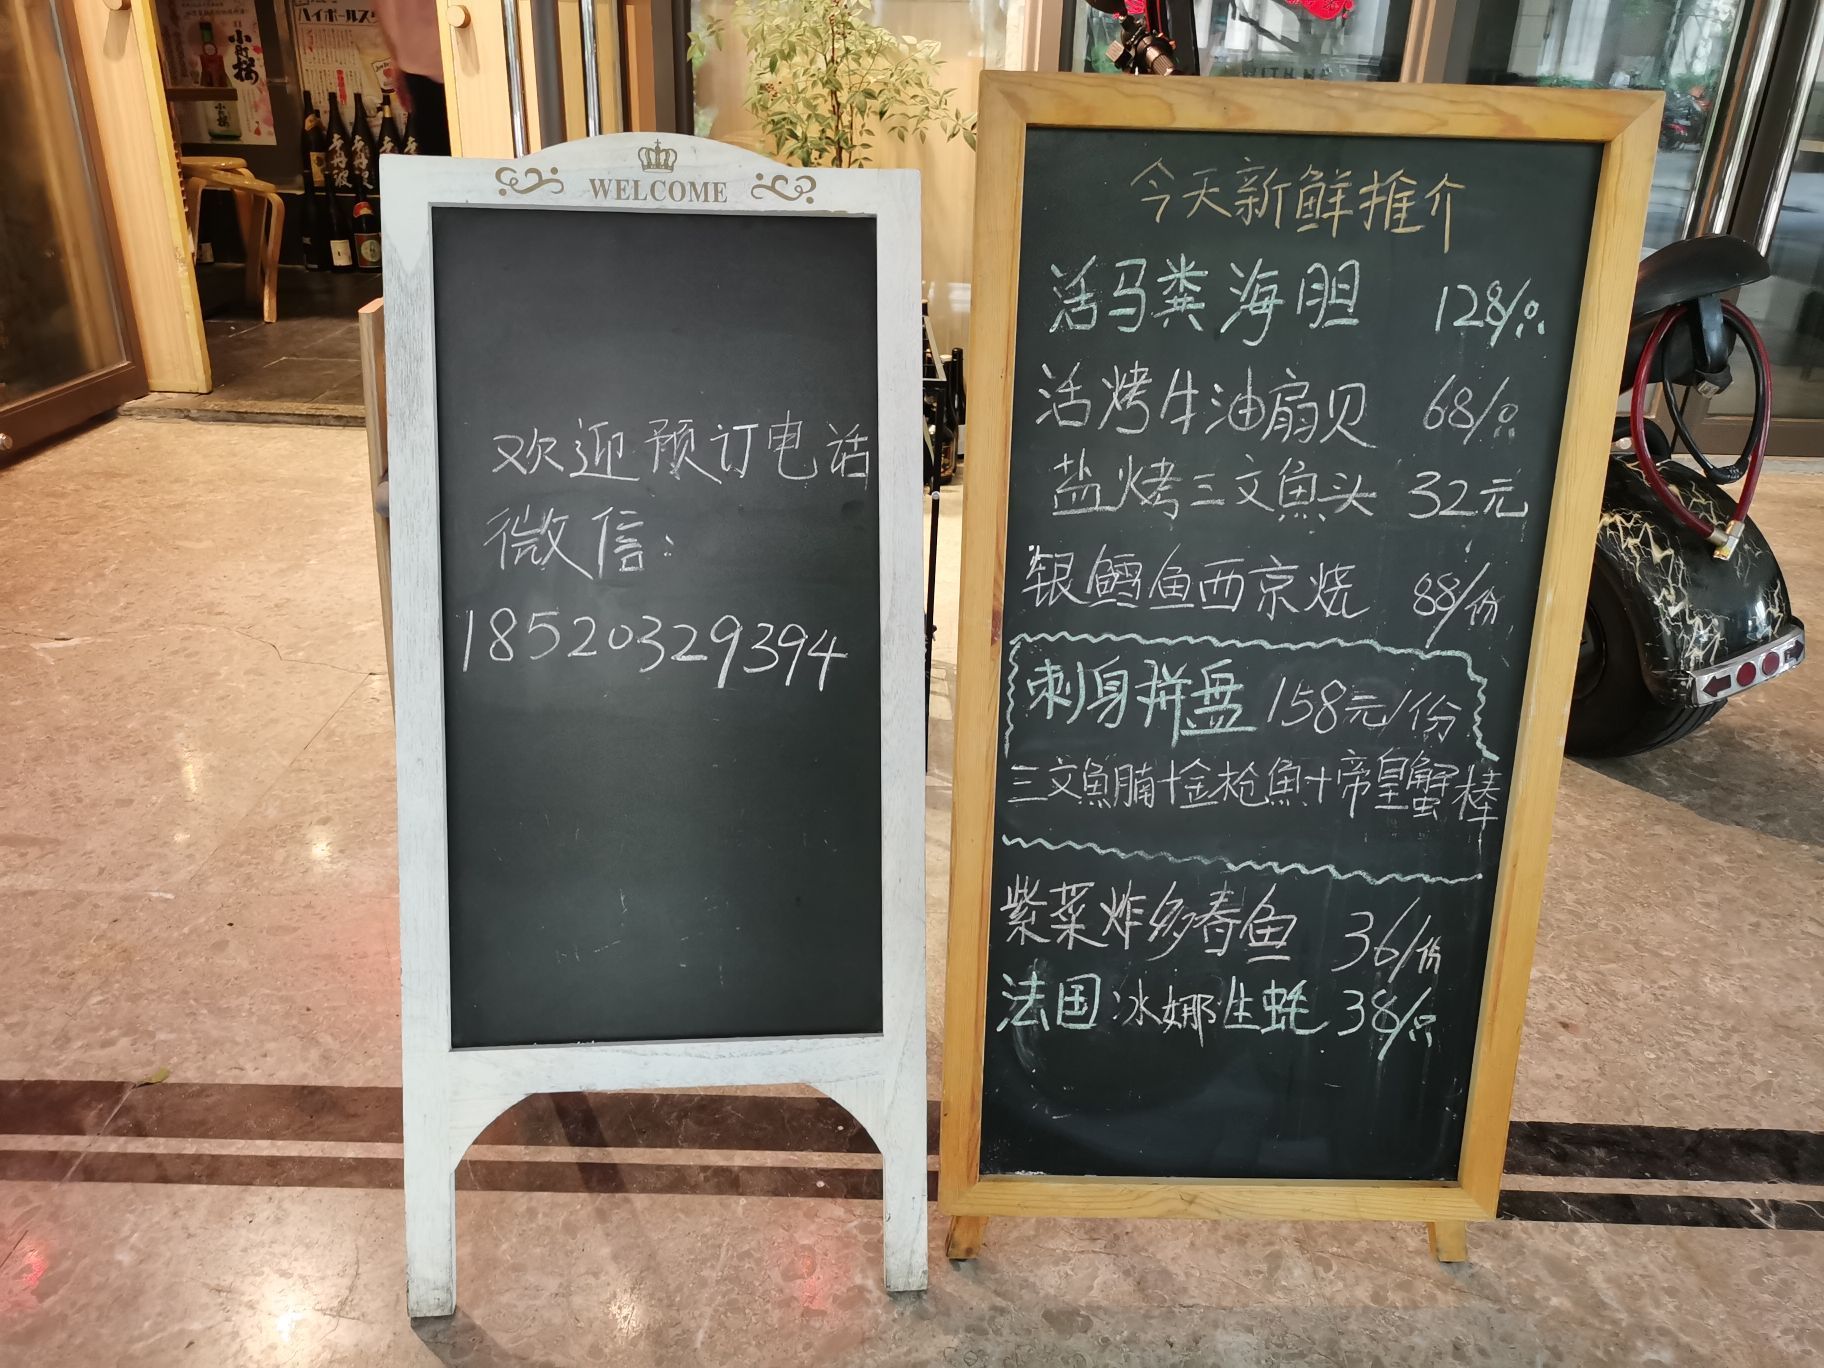 小町桜
小町桜
ハイボール
WELCOME
欢迎预订电话
微信:
18520329394
今天新鲜推介
活马粪海胆 128/只
活烤牛油扇贝 68/只
盐烤三文魚头 32元
银鳕鱼西京烧 88/份
刺身拼盘 158元/份
三文魚腩+金枪魚+帝皇蟹棒
紫菜炸多春鱼 36/份
法国冰娜生蚝 38/只